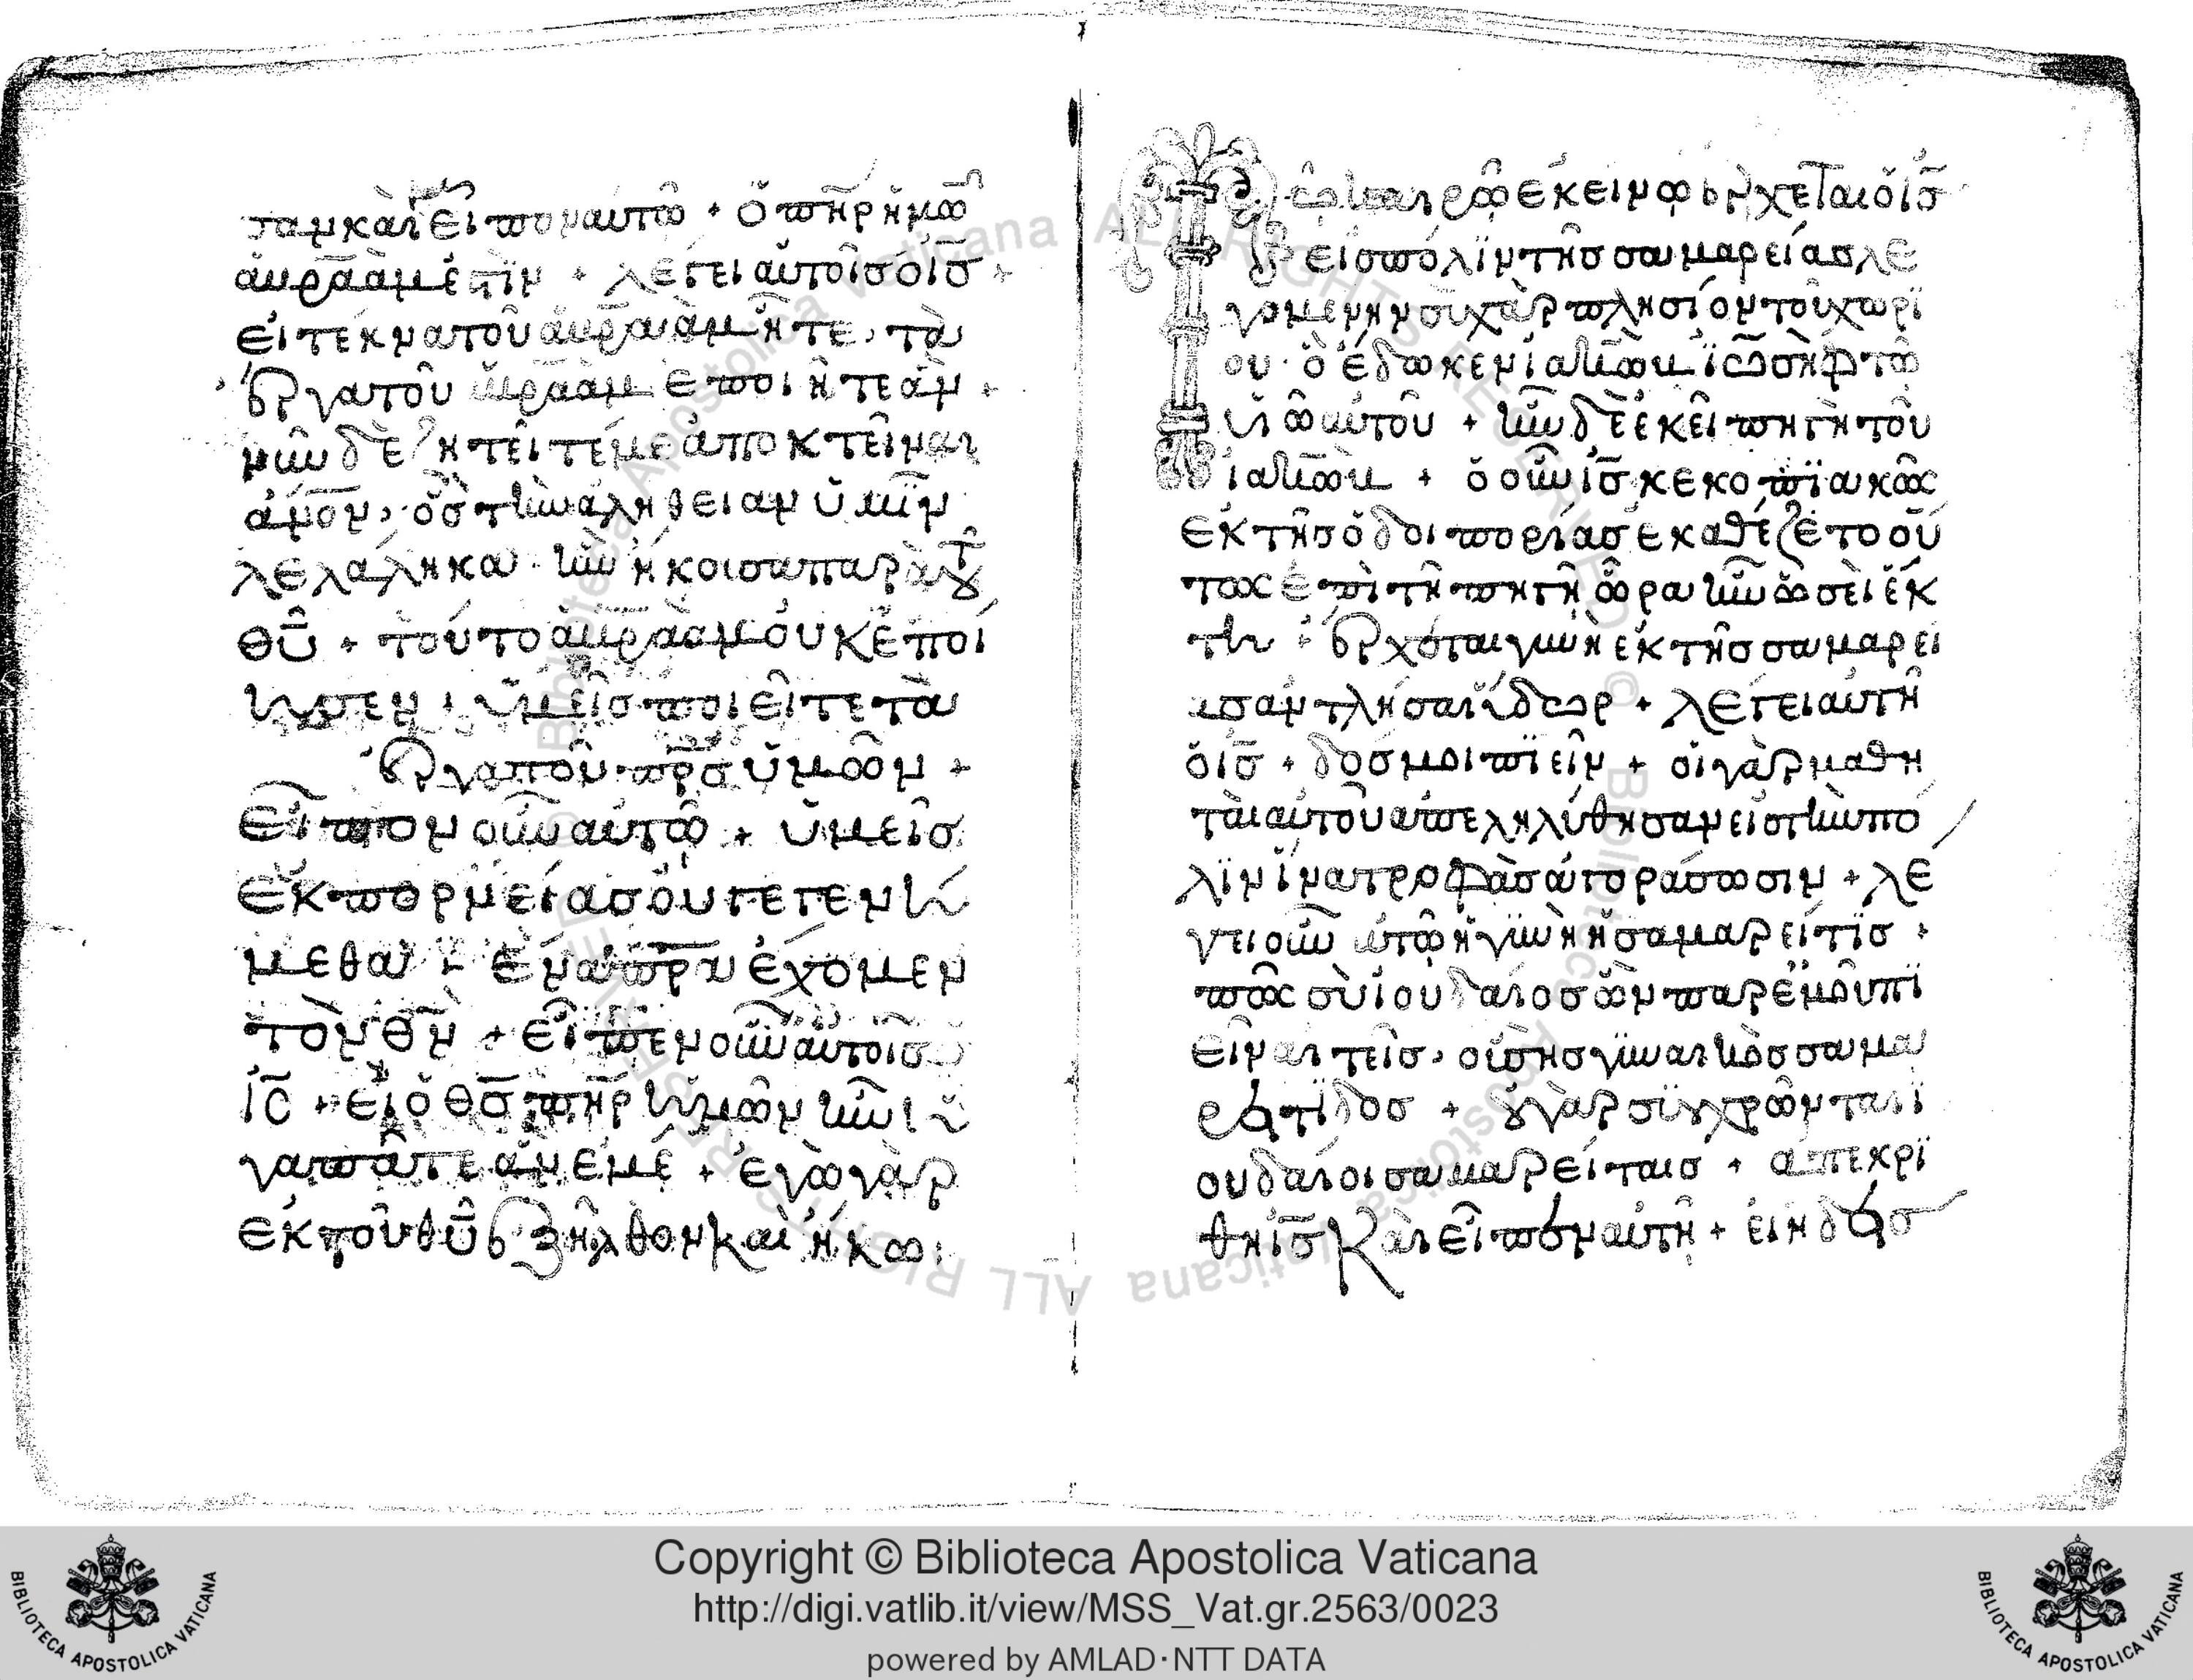 ταν και εἶπον αυτῶ + ὁ πη̅ρ ἡμῶ
ἀβραὰμ ἐστϊν + λέγει αὐτοῖσ ὁ ισ̅ +
εἰ τέκνα τοῦ ἀβραὰμ ἦτε, τὰ
ἔργα τοῦ ἀβραὰμ ἐποιῆτε ἄν +
νῦν δὲ ζητεῖτέ με ἀποκτεῖναι
α̅ν̅ο̅ν, ὃσ τὴν αλήθειαν ὑμῖν
λελάληκα · ἣν ἤκοισα παρὰ τοῦ
θυ̅ + τοῦτο ἀβραὰμ οὐκ ἐποί
ησεν + ὑμεῖσ ποιεῖτε τὰ
ἔργα τοῦ πρ̅σ ὑμῶν +
εἶπον οὖν αὐτῶ + ὑμεῖσ
ἐκ πορνείασ οὐ γεγενή
μεθα + ἕνα πρ̅α ἔχομεν
τὸν θν̅ + εἶπεν οὖν αὐτοῖσ ὁ
ισ̅ + εἰ ὁ θσ̅ πη̅ρ ὑμῶν ἦν ἠ
γαπᾶτε ἂν ἐμέ + ἐγὼ γὰρ
ἐκ τοῦ θυ̅ ἐξῆλθον και ἥκω·
ῶ καιρῶ ἐκείνω ἔρχεται ὁ ισ̅
εἰσ πόλϊν τῆσ σαμαρείασ λε
γομένην συχὰρ πλησίον τοῦ χωρί
ου · ὃ ἔδωκεν ἰακὼβ ἰωσὴφ τῶ
υἱῶ αὐτοῦ + ἦν δὲ ἐκεῖ πηγὴ τοῦ
ἰακώβ + ὁ οὖν ισ̅ κεκοπϊακὼς
ἐκ τῆσ ὁδοιπορίασ ἐκαθέζετο οὕ
τως ἐπὶ τῆ πηγῆ ὥρα ἦν ὡσεὶ ἕκ
τη + ἔρχεται γυνὴ ἐκ τῆσ σαμαρεί
ασ ἀντλῆσαι ὕδωρ + λέγει αὐτῆ
ὁ ισ̅ + δόσ μοι πϊεῖν + οἱ γὰρ μαθη
ταὶ αὐτοῦ ἀπεληλύθησαν εἰσ τὴν πό
λϊν ἵνα τροφὰσ ἀγοράσωσιν + λέ
γει οὖν αὐτῶ ἡ γυνὴ ἡ σαμαρείτϊσ +
πῶς σὺ ἰουδαῖοσ ὢν παρ' ἐμοῦ πϊ
εῖν αιτεῖσ, οὔσησ γυναικὸσ σαμα
ρείτϊδοσ + οὐ γὰρ συγχρῶνται ϊ
ουδαίοι σαμαρείταισ + ἀπεκρί
θη ισ̅ καὶ εἶπεν αὐτῆ + εἰ ἤδεισ
Copyright © Biblioteca Apostolica Vaticana
http://digi.vatlib.it/view/MSS_Vat.gr.2563/0023
powered by AMLAD·NTT DATA
BIBLIOTECA APOSTOLICA VATICANA
BIBLIOTECA APOSTOLICA VATICANA